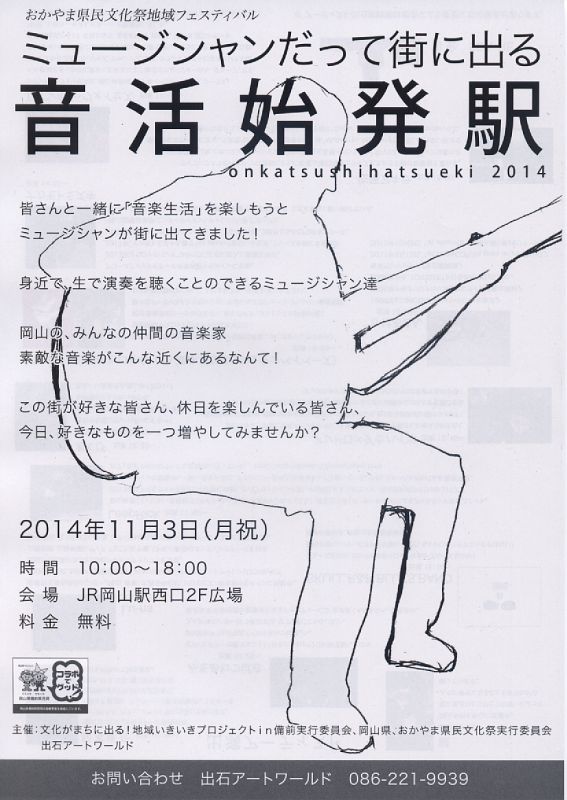 おかやま県民文化祭地域フェスティバル
ミュージシャンだって街に出る
音活始発駅
onkatsushihatsueki 2014
皆さんと一緒に「音楽生活」を楽しもうと
ミュージシャンが街に出てきました!
身近で、生で演奏を聴くことのできるミュージシャン達
岡山の、みんなの仲間の音楽家
素敵な音楽がこんな近くにあるなんて!
この街が好きな皆さん、休日を楽しんでいる皆さん、
今日、好きなものを一つ増やしてみませんか?
2014年11月3日(月祝)
時 間 10:00〜18:00
会 場 JR岡山駅西口2F広場
料 金 無料
コラボでグッド!
主催:文化がまちに出る!地域いきいきプロジェクトin備前実行委員会、岡山県、おかやま県民文化祭実行委員会
出石アートワールド
お問い合わせ 出石アートワールド 086-221-9939